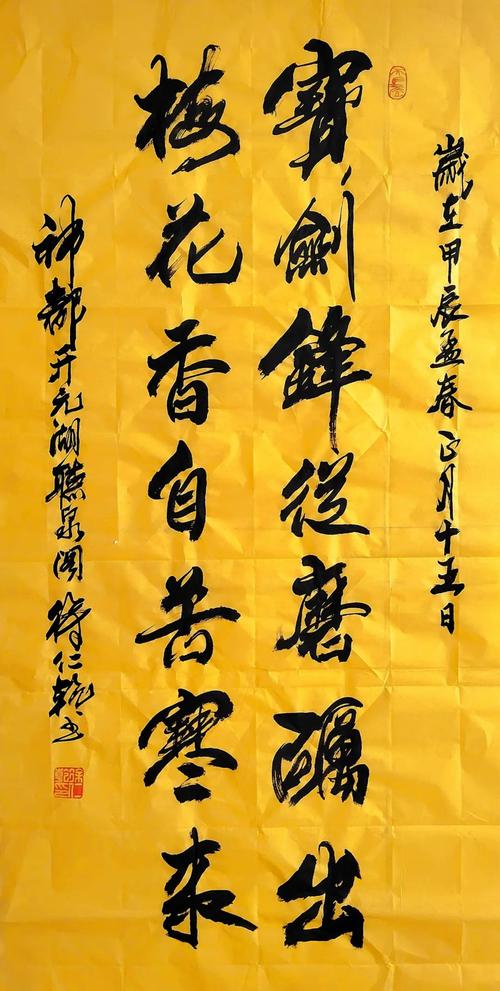 歲在甲辰孟春正月十五日
寶劍鋒從磨礪出
梅花香自苦寒來
神都开元湖聽泉閣徐仁龍书